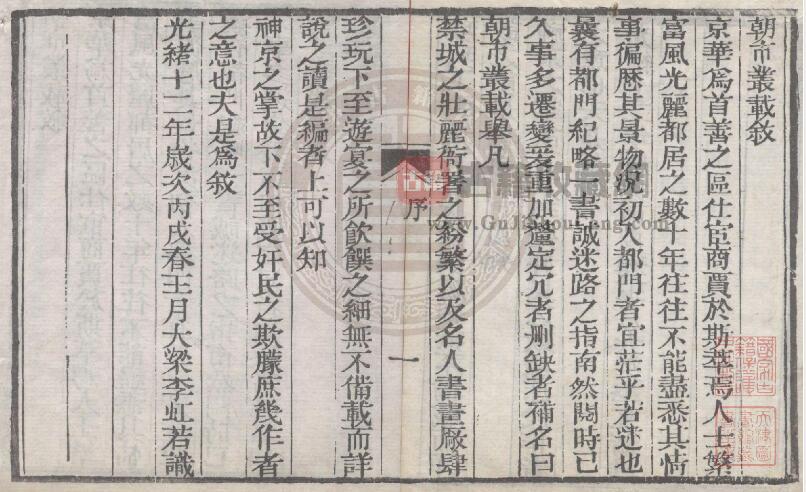 朝市叢載敘
京華為首善之區仕宦商賈於斯萃焉人士繁
富風光麗都居之數十年往往不能盡悉其情
事徧歷其景物况初入都門者宜茫乎若迷也
曩有都門紀略一書誠迷路之指南然閱時已
久事多遷變爰重加釐定冗者刪缺者補名曰
朝市叢載舉凡
禁城之壯麗衙署之紛繁以及名人書畫廠肆
序
一
珍玩下至遊宴之所飲饌之細無不備載而詳
說之讀是編者上可以知
神京之掌故下不至受奸民之欺朦庶幾作者
之意也夫是為敘
光緒十二年歲次丙戌春王月大梁李虹若識
古籍收藏網
www.GuJiShouCang.com